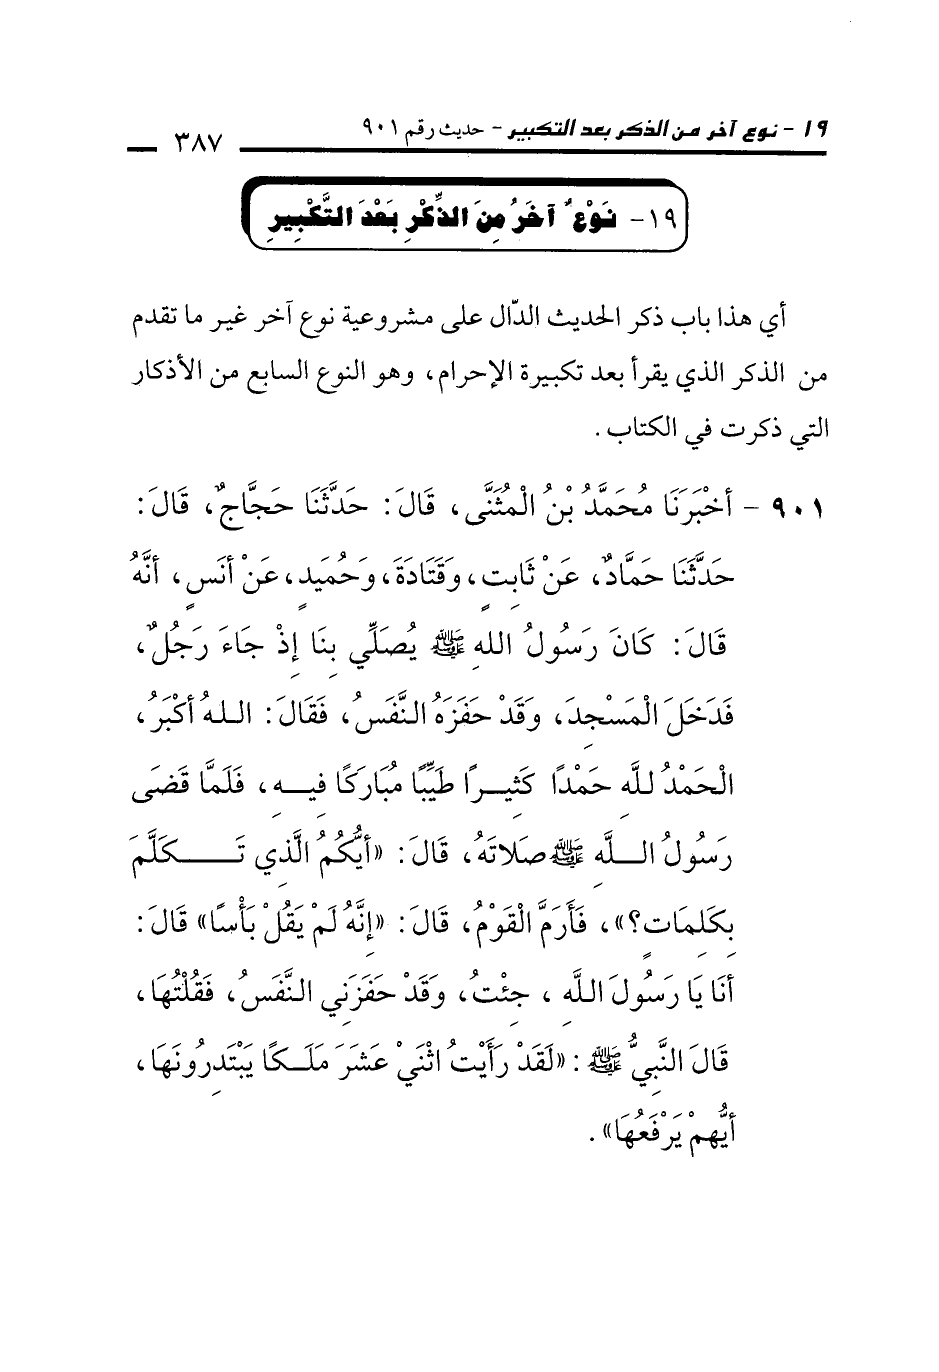 ١٩ - نوع آخر من الذكر بعد التكبير - حديث رقم ٩٠١
٣٨٧
١٩- نَوْعٌ آخَرُ مِنَ الذِّكْرِ بَعْدَ التَّكْبِيرِ
أي هذا باب ذكر الحديث الدّال على مشروعية نوع آخر غير ما تقدم
من الذكر الذي يقرأ بعد تكبيرة الإحرام، وهو النوع السابع من الأذكار
التي ذكرت في الكتاب .
٩٠١ - أَخْبَرَنَا مُحَمَّدُ بْنُ الْمُثَنَّى، قَالَ: حَدَّثَنَا حَجَّاجٌ، قَالَ:
حَدَّثَنَا حَمَّادٌ، عَنْ ثَابِتٍ، وَقَتَادَةَ، وَحُمَيدٍ، عَنْ أَنَسٍ، أَنَّهُ
قَالَ: كَانَ رَسُولُ اللهِ ﷺ يُصَلِّي بِنَا إِذْ جَاءَ رَجُلٌ،
فَدَخَلَ الْمَسْجِدَ، وَقَدْ حَفَزَهُ النَّفَسُ، فَقَالَ: اللهُ أَكْبَرُ،
الْحَمْدُ للَّهِ حَمْدًا كَثِيرًا طَيِّبًا مُبَارَكًا فِيهِ، فَلَمَّا قَضَى
رَسُولُ اللَّهِ ﷺ صَلَاتَهُ، قَالَ: «أَيُّكُمُ الَّذِي تَكَلَّمَ
بِكَلِمَاتٍ؟»، فَأَرَمَّ الْقَوْمُ، قَالَ: «إِنَّهُ لَمْ يَقُلْ بَأْسًا» قَالَ:
أَنَا يَا رَسُولَ اللَّهِ ، جِئْتُ، وَقَدْ حَفَزَنِي النَّفَسُ، فَقُلْتُهَا،
قَالَ النَّبِيُّ ﷺ : «لَقَدْ رَأَيْتُ اثْنَيْ عَشَرَ مَلَكًا يَبْتَدِرُونَهَا،
أَيُّهُمْ يَرْفَعُهَا» .